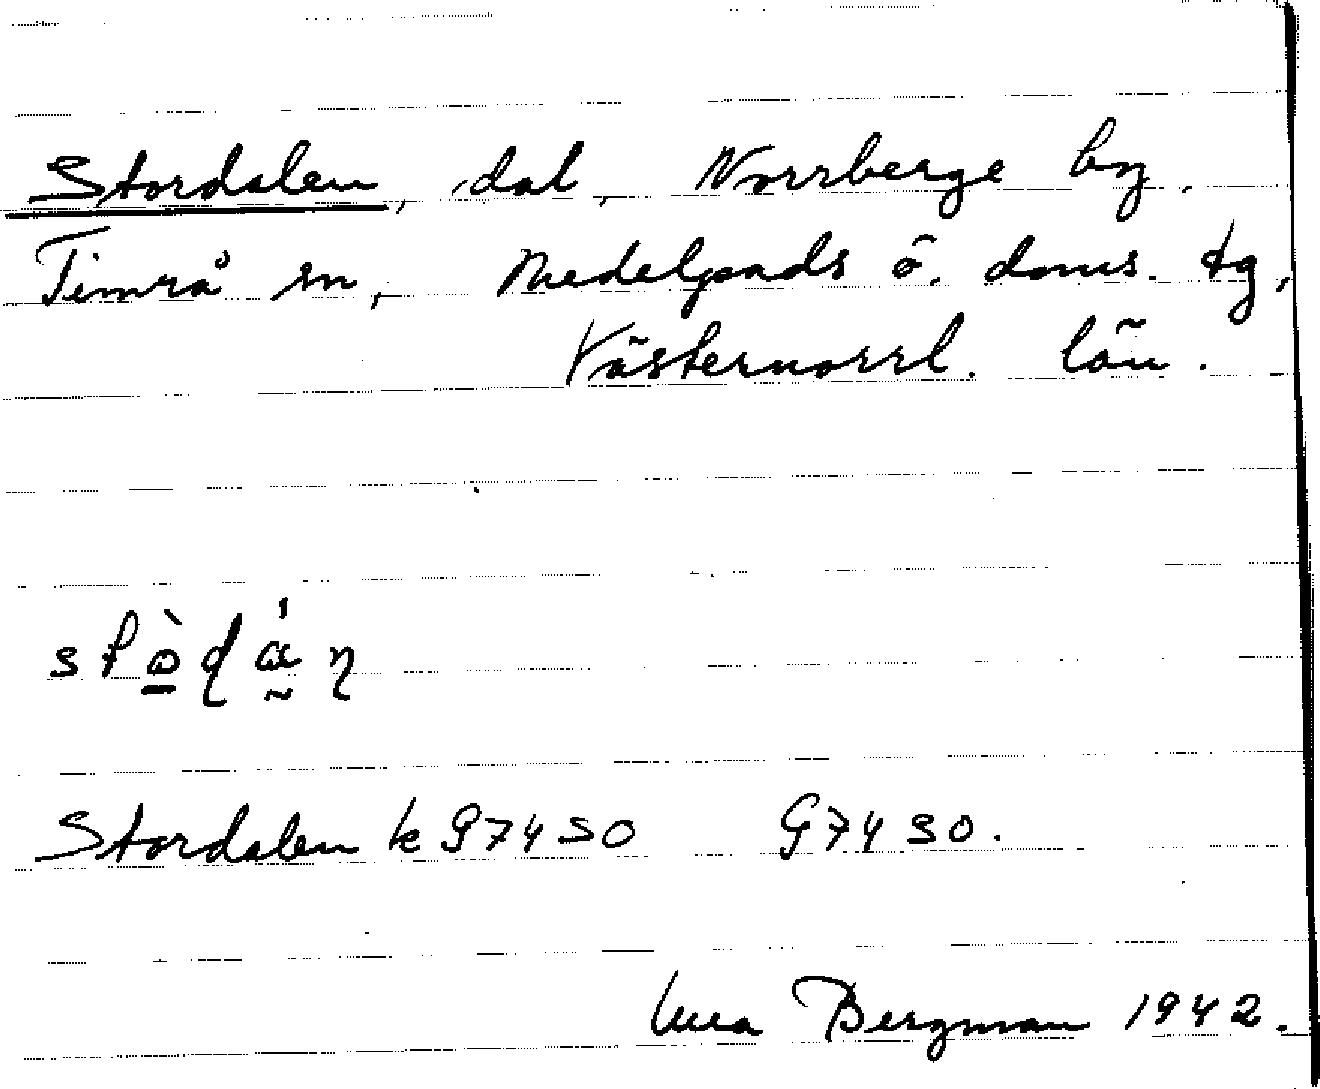 Stordalen, dal, Norrberge by.
Timrå sn, Medelpads ö. doms. tg,
Västernorrl. län.
Stordalen k G7430 G7430.
Bergman 1942.